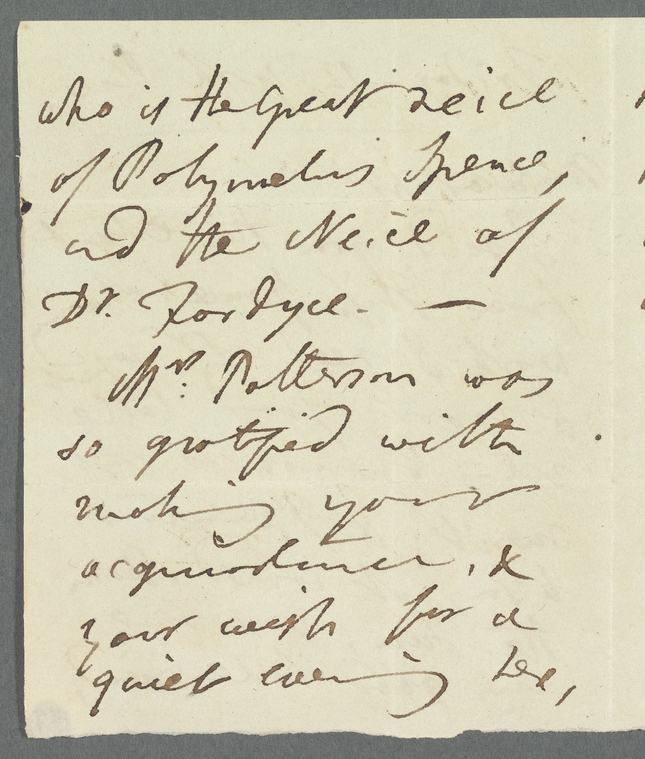 who is the Great neice
of Polymetis Spence,
and the Neice of
Dr. Fordyce. —
Mrs. Patterson was
so gratified with
making your
acquaintance, &
your wish for a
quiet evening tea,